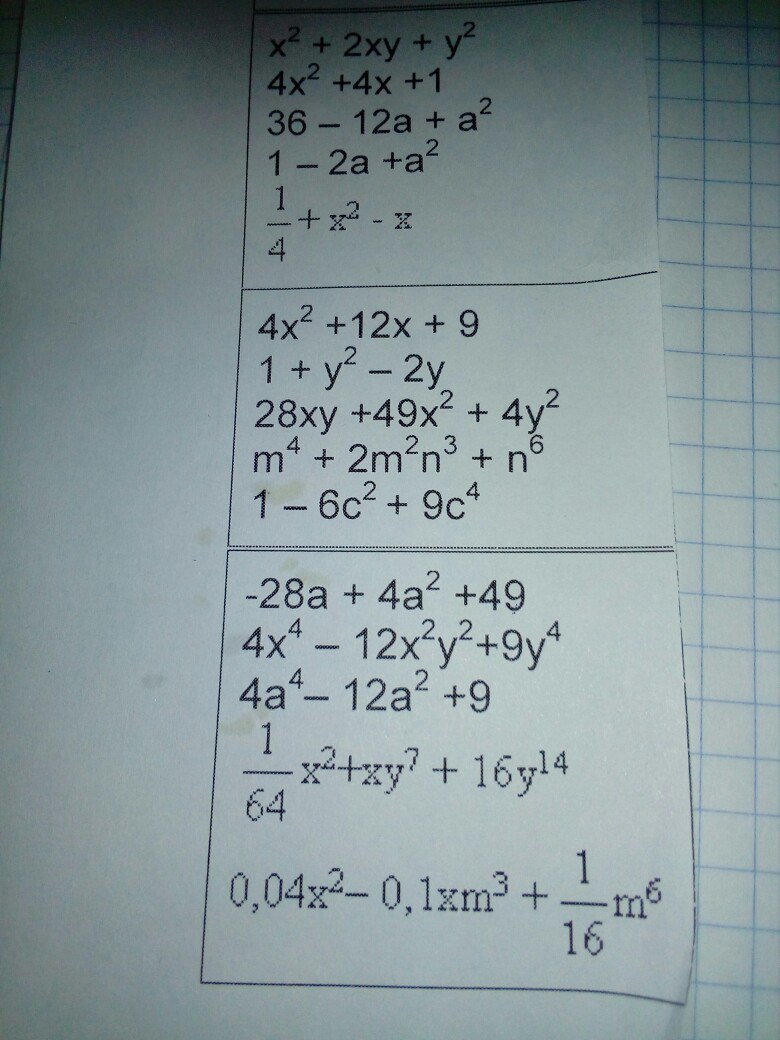 x² + 2xy + y²
4x² +4x +1
36 – 12a + a²
1 – 2a +a²
1/4 + x² - x
4x² +12x + 9
1 + y² – 2y
28xy +49x² + 4y²
m⁴ + 2m²n³ + n⁶
1 – 6c² + 9c⁴
-28a + 4a² +49
4x⁴ – 12x²y²+9y⁴
4a⁴– 12a² +9
1/64 x²+xy⁷ + 16y¹⁴
0,04x²– 0,1xm³ + 1/16 m⁶